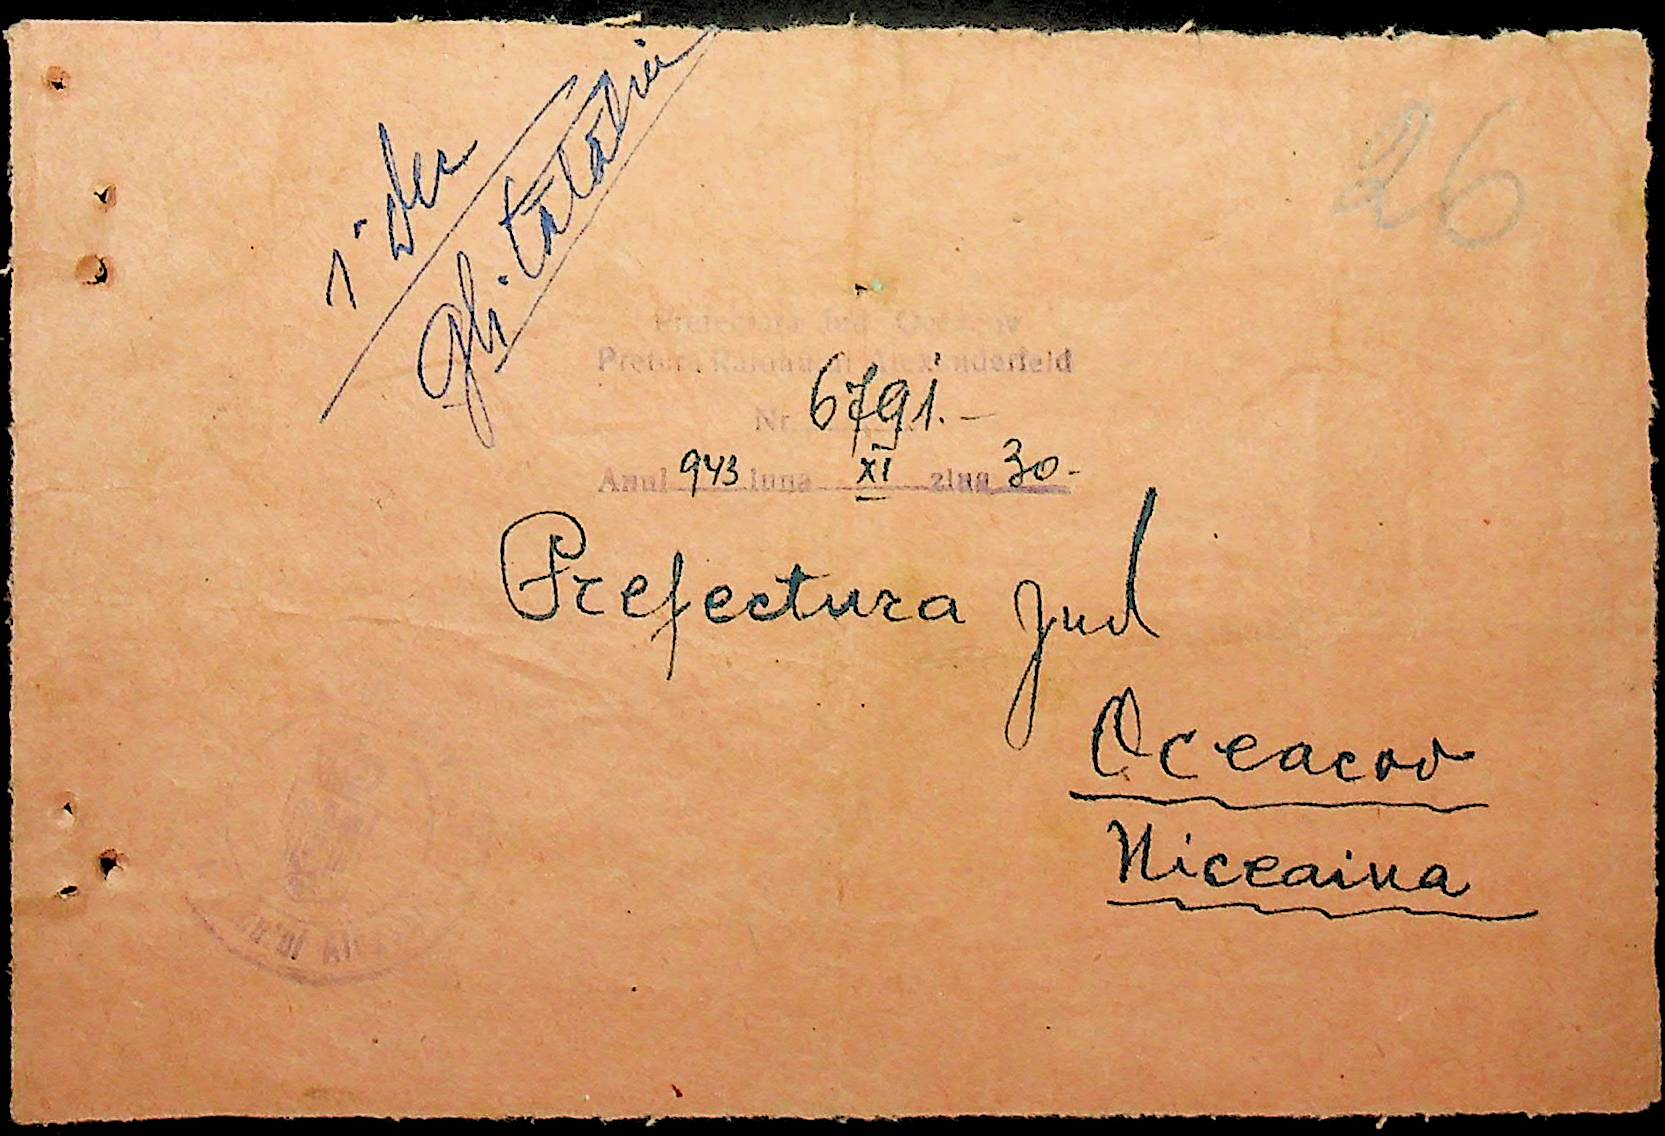 1 Dec
Gh. Tătăru
26
Prefectura Jud. Oceacov
Pretura Raionului Alexanderfeld
Nr. 6791.-
Anul 943 luna XI ziua 30-
Prefectura Jud
Oceacov
Niceaina